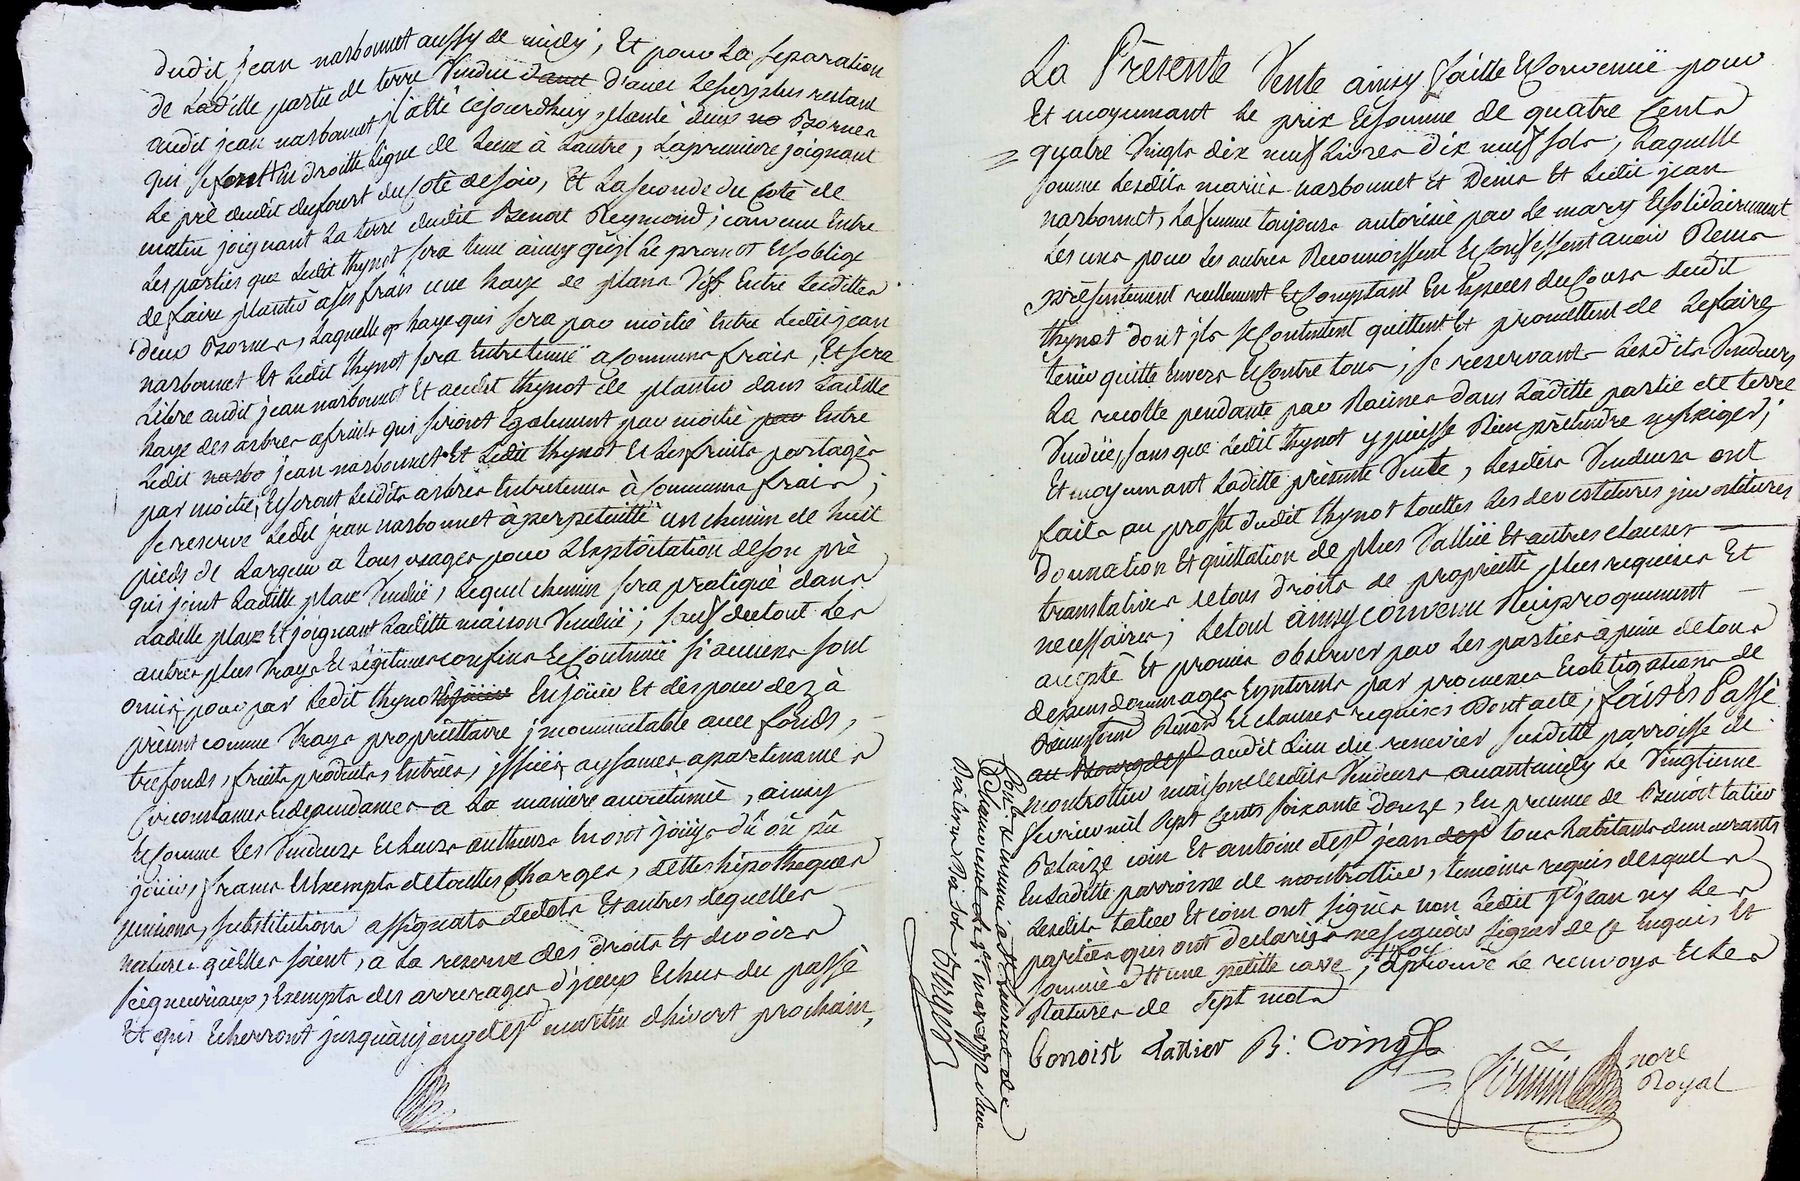 dudit jean narbonnet aussy de midy, Et pour La separation
de Laditte partie de terre Venduë d'avec Lesurplus restant
audit jean narbonnet jl a été cejourdhuy planté deux Bornes
qui se font En droitte Ligne de Lune à Lautre, Lapremiere joignant
Le pré dudit dufourt ducoté desoir, Et Laseconde du Coté de
matin joignant La terre dudit Benoit Reymond; convenu Entre
Les parties que Ledit thynot sera tenu ainsy qu'jl Le promet Ets'oblige
de faire planter a ses frais une haye de plans Vifs Entre Lesdittes
deux Bornes, Laquelle haye qui sera par moitié Entre Ledit jean
narbonnet Et Ledit thynot sera Entretenuë a Communs frais, Et sera
Libre audit jean narbonnet Et audit thynot de planter dans Laditte
haye des arbres afruits qui seront Egalement par moitié par Entre
Ledit narbo jean narbonnet Et Ledit thynot Et Lesfruits partagés
par moitié, Etseront Lesdits arbres Entretenus à Communs frais;
se reserve Ledit jean narbonnet àperpetuitté un chemin de huit
pieds de Largeur a tous usages pour LExploitation deson pré
qui joint Laditte place Venduë, Lequel chemin sera pratiqué dans
Laditte place Et joignant Laditte maison Venduë; sauf dutout Les
autres plus Vrays Et Légitimes confins EtContenuë si aucuns sont
omis, pour par Ledit thynot En joüir Et dispour dez à
présent comme Vraye propriéttaire jncommutable avec fonds,
trefonds, fruits produits, Entrées, jssües, aysances apartenances
Circonstances Etdependances a La maniere accoutumée, ainsy
EtComme Les Vendeurs Et Leurs autheurs En ont joüys dû oû pû
joüir, francs Et Exempts detouttes Charges, dettes hipotheques
pensions, substitutions assignats dedots Et autres dequelles
natures qu'elles soient, a La reserve des droits Et devoirs
seigneuriaux, Exempts des arrerages d'jceux Echus du passé
Et qui Echerront jusqu'aujour de st martin dhivert prochain,
La Présente Vente ainsy faitte EtConvenuë pour
Et moyennant Le prix Etsomme de quatre Cents
quatre Vingts dix neuf Livres dix neuf sols, Laquelle
somme Lesdits mariés narbonnet Et Denis Et Ledit jean
narbonnet, Lafemme toujours autorisée par Le mary Etsolidairement
Les uns pour Les autres Reconnoissent EtConfessent avoir Reçus
présentement réellement EtComptant En Especes duCours dudit
thynot dont jls seContentent quittent Et promettent de Lefaire
tenir quitte Envers EtContre tous; se reservants Lesdits Vendeurs
La recolte pendante par Racines dans Laditte partie de terre
Venduë, sans que Ledit thynot y puisse Rien prétendre nyExiger;
Et moyennant Laditte présente Vente, Lesdits Vendeurs ont
faits au profit dudit thynot touttes Les devestitures jnvestitures
donnation Et quittation de plus Valluë Et autres clauses
translatives de tous droits de propriétté plus requises Et
necessaires; Letout ainsy convenu Reciproquement
accepté Et promis observer par Les parties à peine detous
depens dommages Et jnterets par promesses Et obligations de
Biens Et clauses requises Dont acte, fait Et Passé
au Bourg dest audit Lieu du renevier susditte parroisse de
montrottier maison desdits Vendeurs avantmidy Le Vingtieme
fevrier mil sept cents soixante douze, En presence de Benoit tatier
Blaize coin Et antoine dest jean dest tous habitants demeurants
EnLaditte parroisse de montrottier, temoins requis desquels
Lesdits tatier Et coin ont signés non Ledit st jean ny Les
parties qui ont declarés ne sçavoir signer de ce Enquis Et
sommés Et une petitte cave; aprouvé Le renvoye Et Les
Ratures de sept mots
Benoist tattier B: Coing
nore
Royal